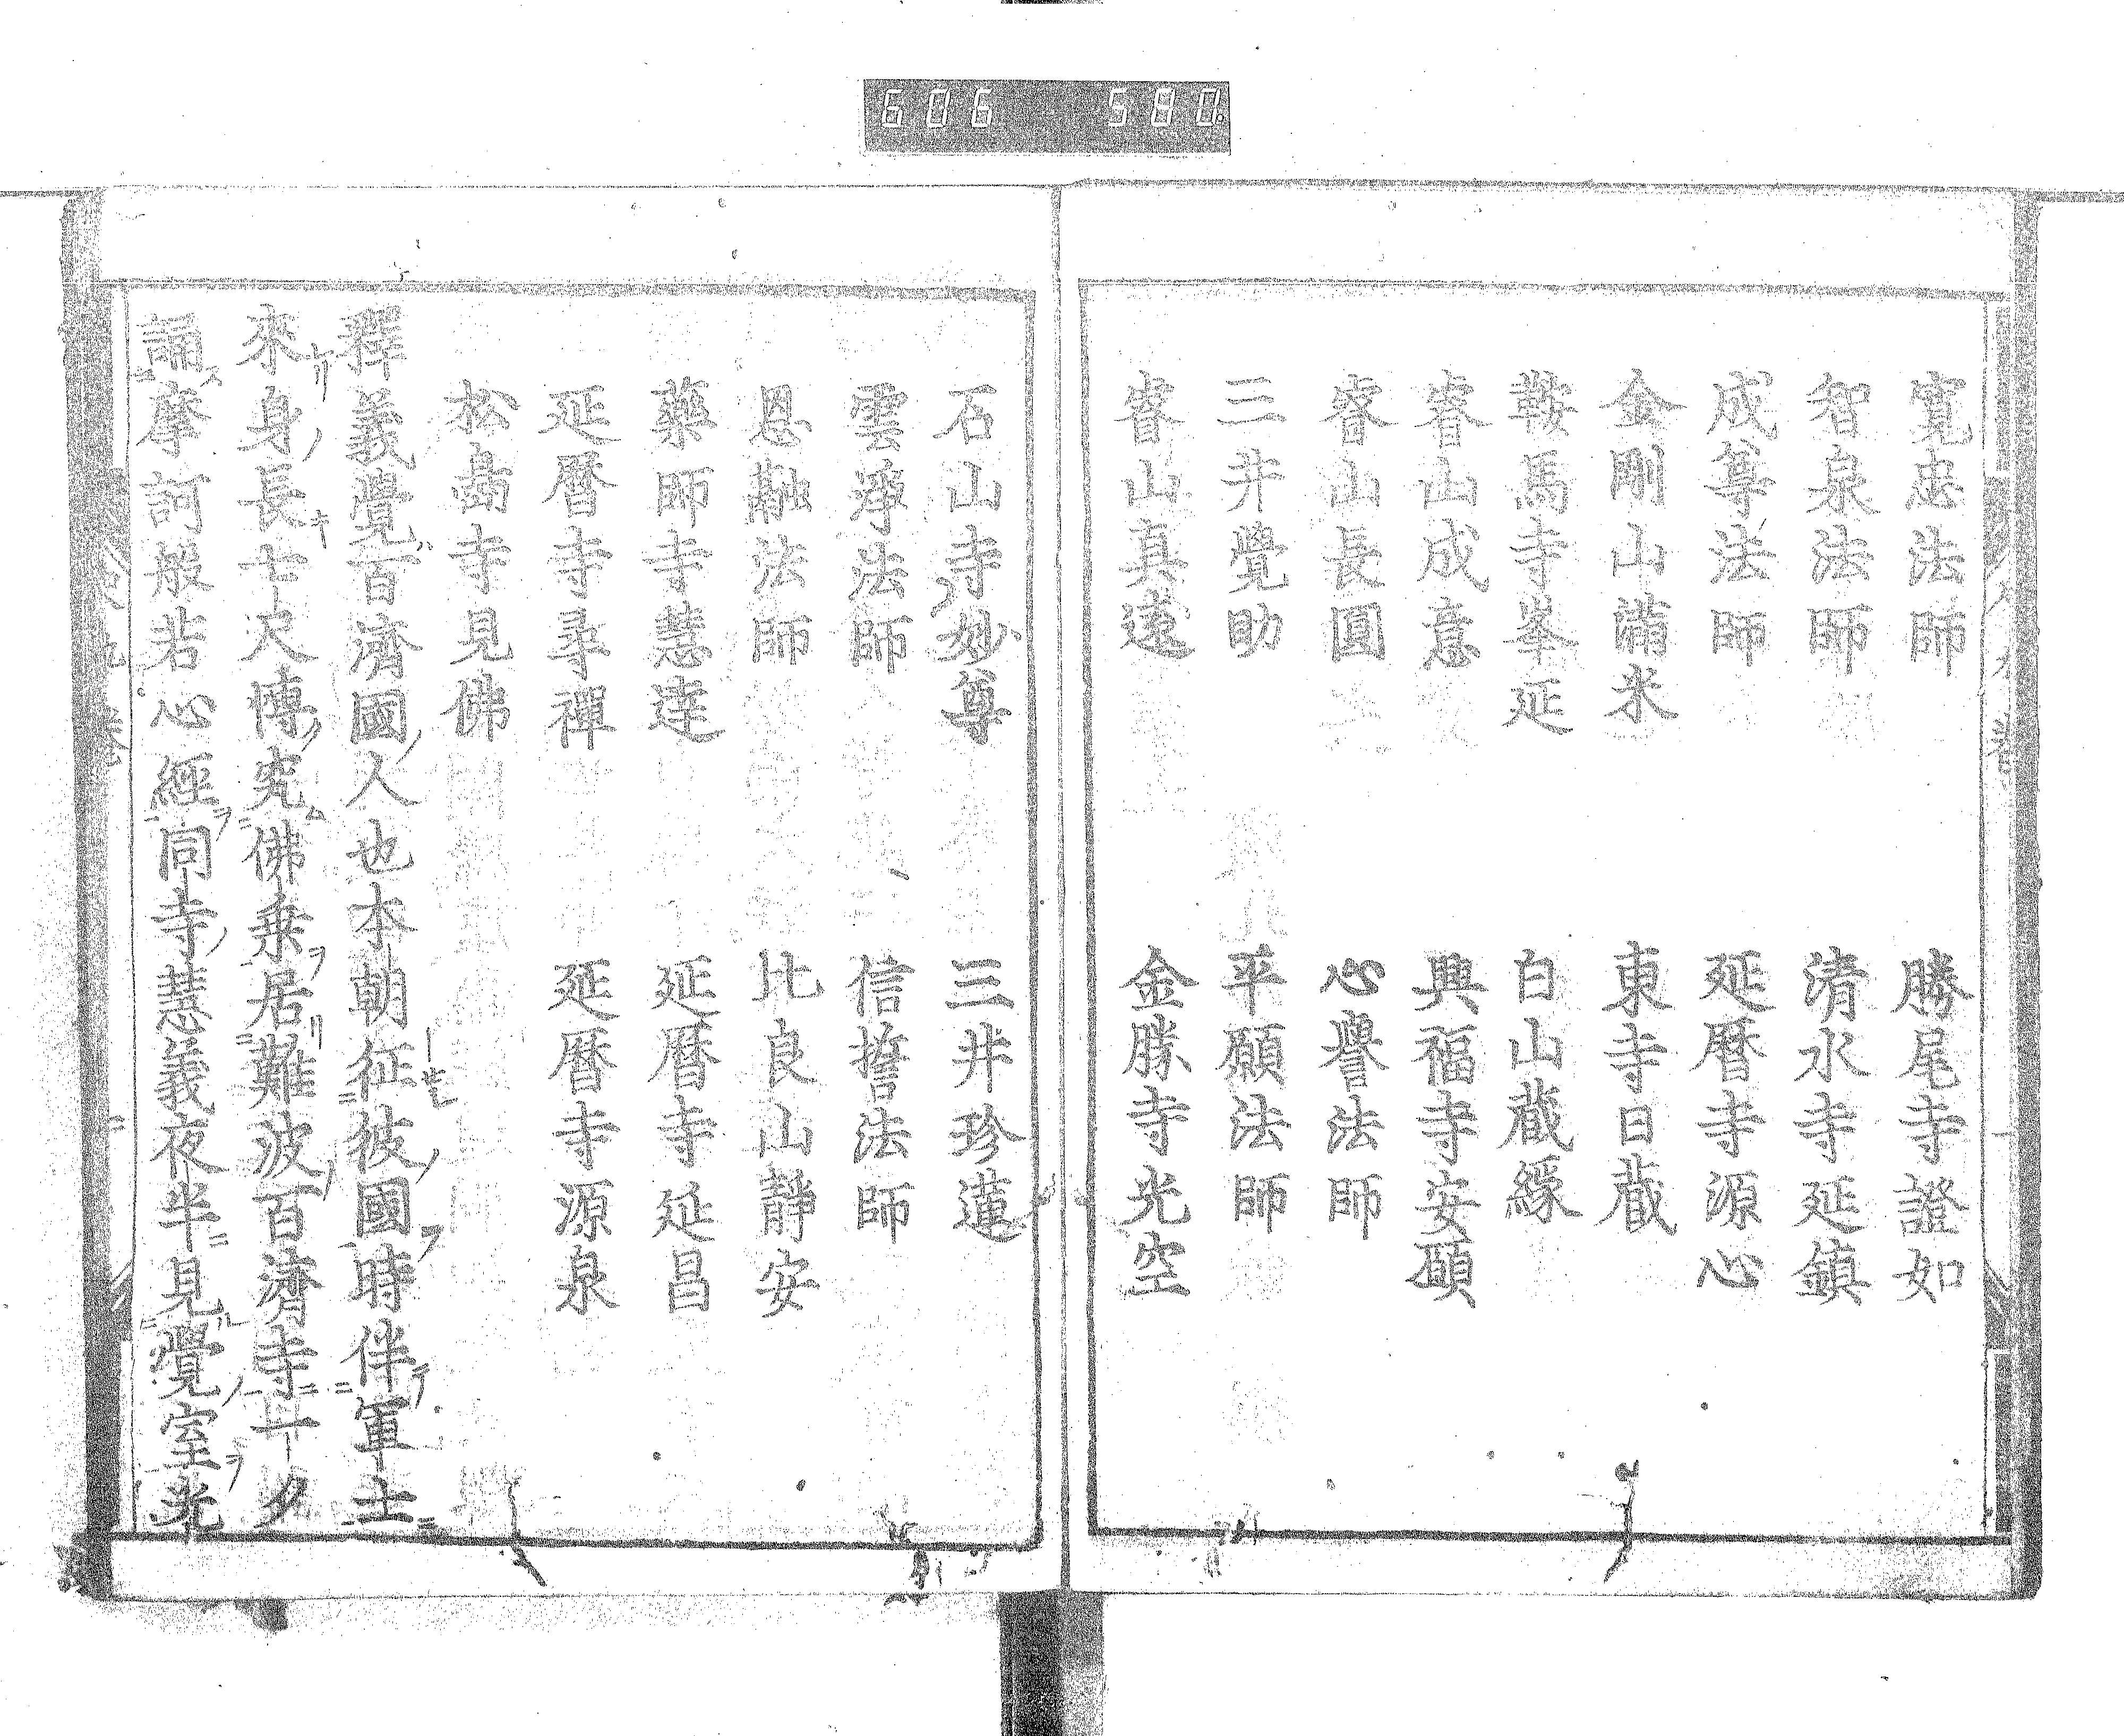 606 580
寛忠法師 勝尾寺證如
智泉法師 清水寺延鎮
成尊法師 延暦寺源心
金剛山滿米 東寺日蔵
鞍馬寺峯延 白山蔵縁
睿山成意 興福寺安願
睿山長圓 心譽法師
三井覺助 平願法師
睿山真遠 金勝寺光空
石山寺妙尊 三井珍蓮
雲淨法師 信擔法師
恩融法師 比良山靜安
藥師寺慧達 延暦寺延昌
延暦寺尋禪 延暦寺源泉
松嶋寺見佛
釋義覺百濟國人也本朝征彼國時伴軍士
來身長七尺慱究佛乗居難波百濟寺一夕
誦摩訶般若心經同寺慧義夜半見覺室光